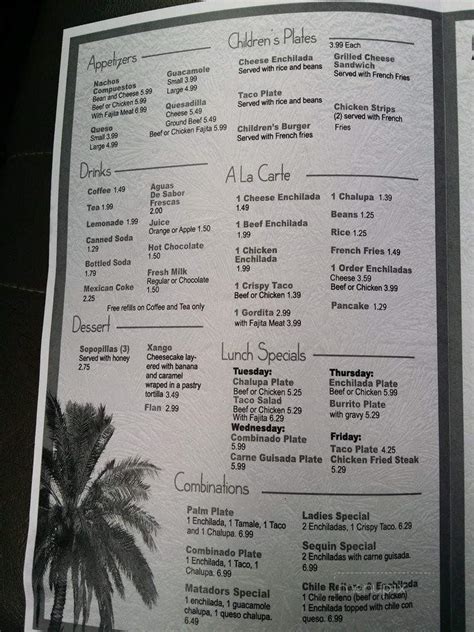 Appetizers
Nachos
Compuestos
Bean and Cheese 5.99
Beef or Chicken 5.99
With Fajita Meat 6.99
Queso
Small 3.99
Large 4.99
Guacamole
Small 3.99
Large 4.99
Quesadilla
Cheese 5.49
Ground Beef 5.49
Beef or Chicken 5.99
With Fajita 5.99
Children's Plates
3.99 Each
Cheese Enchilada
Served with rice and beans
Taco Plate
Served with rice and beans
Children's Burger
Served with French fries
Grilled Cheese
Sandwich
Served with French Fries
Chicken Strips
(2) served with French
Fries
Drinks
Coffee 1.49
Tea 1.99
Lemonade 1.99
Canned Soda
1.29
Bottled Soda
1.79
Mexican Coke
2.25
Aguas
De Sabor
Frescas
2.00
Juice
Orange or Apple 1.50
Hot Chocolate
1.50
Fresh Milk
Regular or Chocolate
1.50
Free refills on Coffee and Tea only
A La Carte
1 Cheese Enchilada
1.49
1 Beef Enchilada
1.99
1 Chicken
Enchilada
1.99
1 Crispy Taco
Beef or Chicken 1.39
1 Gordita 2.99
with Fajita Meat 3.99
1 Chalupa 1.39
Beans 1.25
Rice 1.25
French Fries 1.49
1 Order Enchiladas
Cheese 3.59
Beef or Chicken 3.99
Pancake 1.29
Dessert
Sopopillas (3)
Served with honey
2.75
Xango
Cheesecake lay-
ered with banana
and caramel
wrapped in a pastry
tortilla 3.49
Flan 2.99
Lunch Specials
Tuesday:
Chalupa Plate
Beef or Chicken 5.25
Taco Salad
Beef or Chicken 5.99
Wednesday:
Combinado Plate
5.99
Carne Guisada Plate
5.99
Thursday:
Enchilada Plate
Beef or Chicken 5.99
Burrito Plate
with gravy 5.29
Friday:
Taco Plate 4.25
Chicken Fried Steak
5.29
Combinations
Palm Plate
1 Enchilada, 1 Tamale, 1 Taco
and 1 Chalupa. 6.99
Combinado Plate
1 Enchilada, 1 Taco, 1
Chalupa. 6.99
Matadors Special
1 enchilada, 1 guacamole
chalupa, 1 queso chalupa.
6.49
Ladies Special
2 Enchiladas, 1 Crispy Taco. 6.29
Sequin Special
2 Enchiladas with carne guisada.
6.99
Chile Relleno & Enchilada
1 Chile relleno (beef or chicken)
1 Enchilada topped with chile con
queso. 6.99